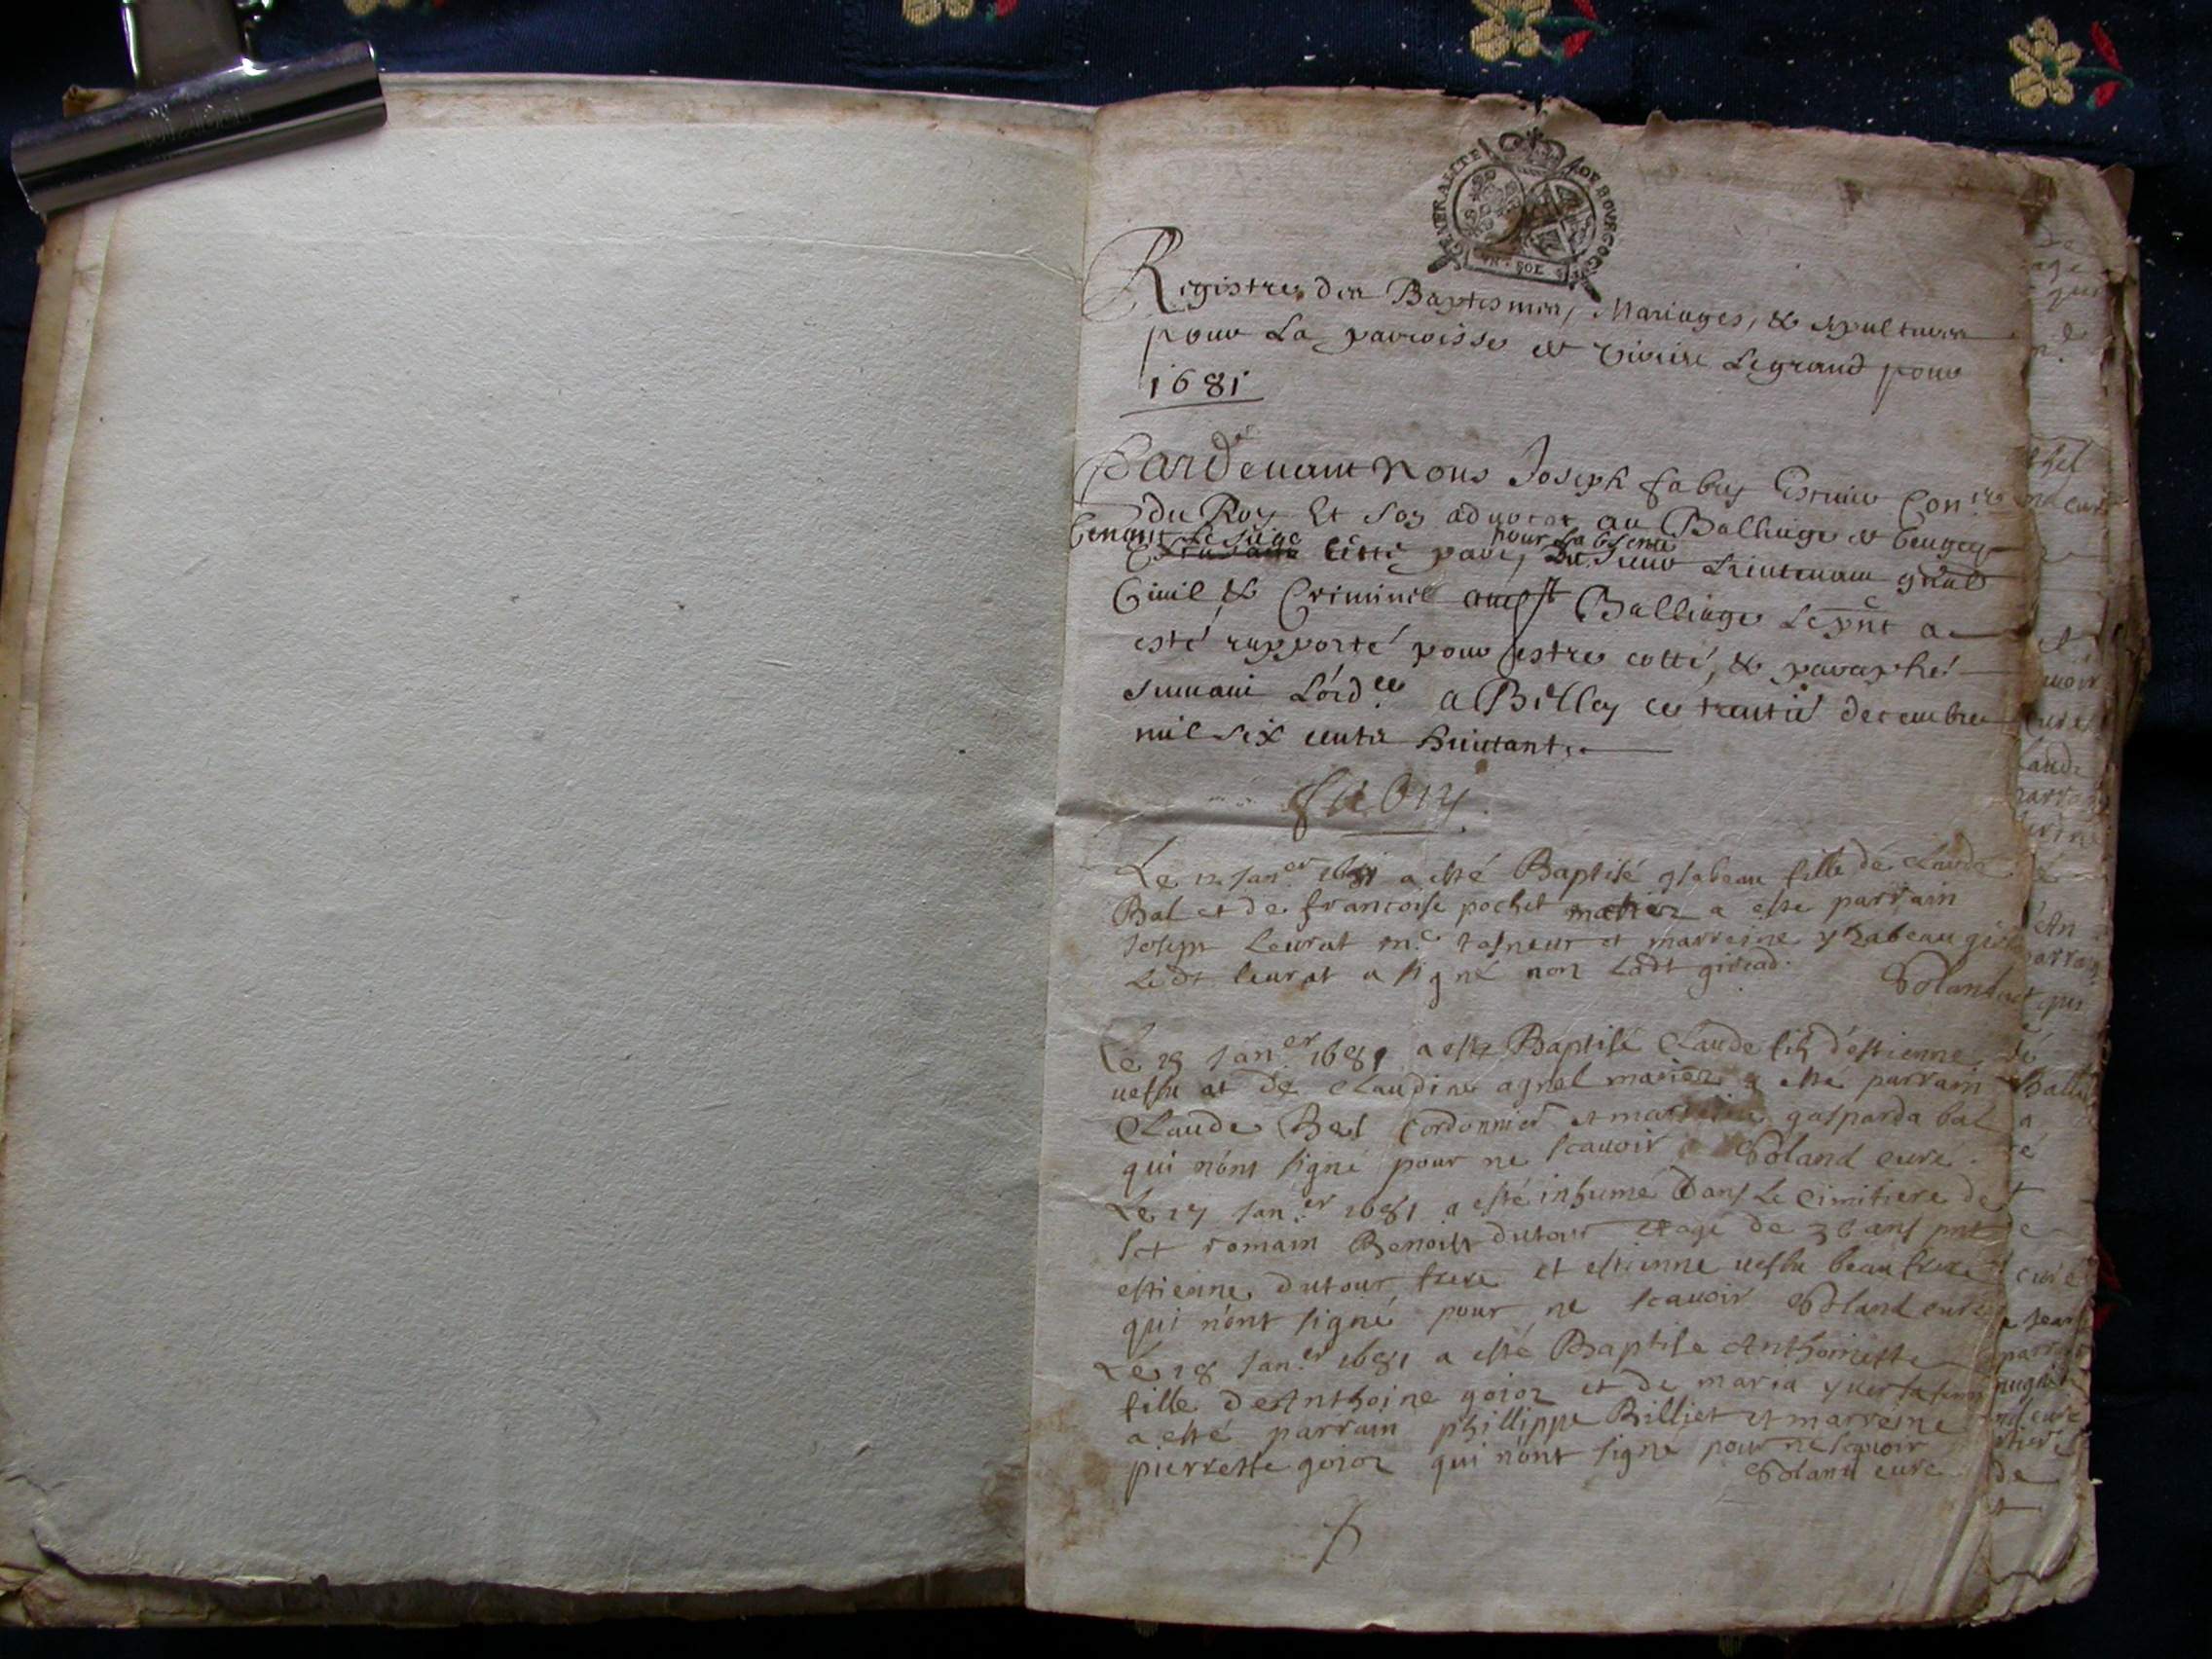 GENERALITE DE BOVRGOGNE
SOL
Registres des Baptesmes, Mariages, & sepultures
pour La parroisse de Virieu Legrand pour
1681
Pardeuant Nous Joseph fabry Escuier Con.er
du Roy Et son aduocat au Balliage de beugey
tenant Le siege pour Labsence
Cette part, Du sieur Lieutenant gnal
Ciuil & Criminel audt Balliage Le pnt a
esté rapporté pour estre cotté, & paraphé
suiuant Lord.ce a Belley ce trentie decembre
mil six cents huictante
fabry
Le 12 Jan.er 1681 a esté Baptisé ysabeau fille de Claude
Bal et de francoise pochet mariez a este parrain
Joseph Leurat m.e et marreine ysabeau
Ledt leurat a signé non Ladt girod.
Poland
Le 15 Jan.er 1681 a este Baptisé Claude fils d'estienne
uessu et de Claudine agnel mariez a esté parrain
Claude Bal cordonnier et marreine gasparda bal
qui n'ont signé pour ne scauoir Poland curé.
Le 17 Jan.er 1681 a esté inhumé Dans Le Cimitiere de
sct romain Benoist dutour agé de 36 ans pnt
estienne dutour frere et estienne uessu beau frere
qui n'ont signé pour ne scauoir Poland curé
Le 18 Jan.er 1681 a esté Baptise Anthoinette
fille deAnthoine goion et de maria sa femme
a esté parrain phillippe Billiet et marreine
pierrette goion qui n'ont signé pour ne scauoir
Poland cure